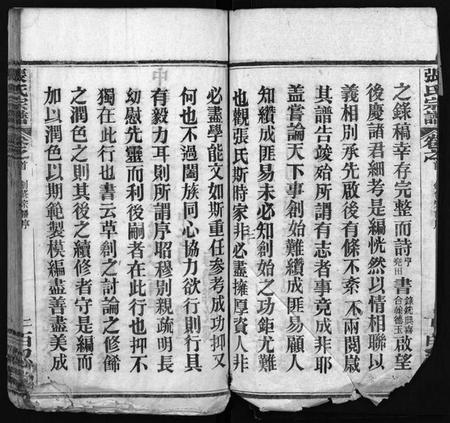 張氏宗譜
卷之首
之錄稿幸存完整而詩書啟望
後慶諸君細考是編恍然以情相聯以
義相別承先啟後有條不紊不兩閱歲
其譜告竣始所謂有志者事竟成非耶
蓋嘗論天下事創始難纘成匪易顧人
知纘成匪易未必知創始之功鉅尤難
也觀張氏斯時家非必盡擁厚資人非
必盡學能文如斯重任參考成功抑又
何也不過闔族同心協力欲行則行具
有毅力耳則所謂序昭穆別親疏明長
幼慰先靈而利後嗣者在此行也抑不
獨在此行也書云草創之討論之修飾
之潤色之則其後之續修者守是編而
加以潤色以期範製模編盡善盡美成
張氏宗譜
卷之首
二